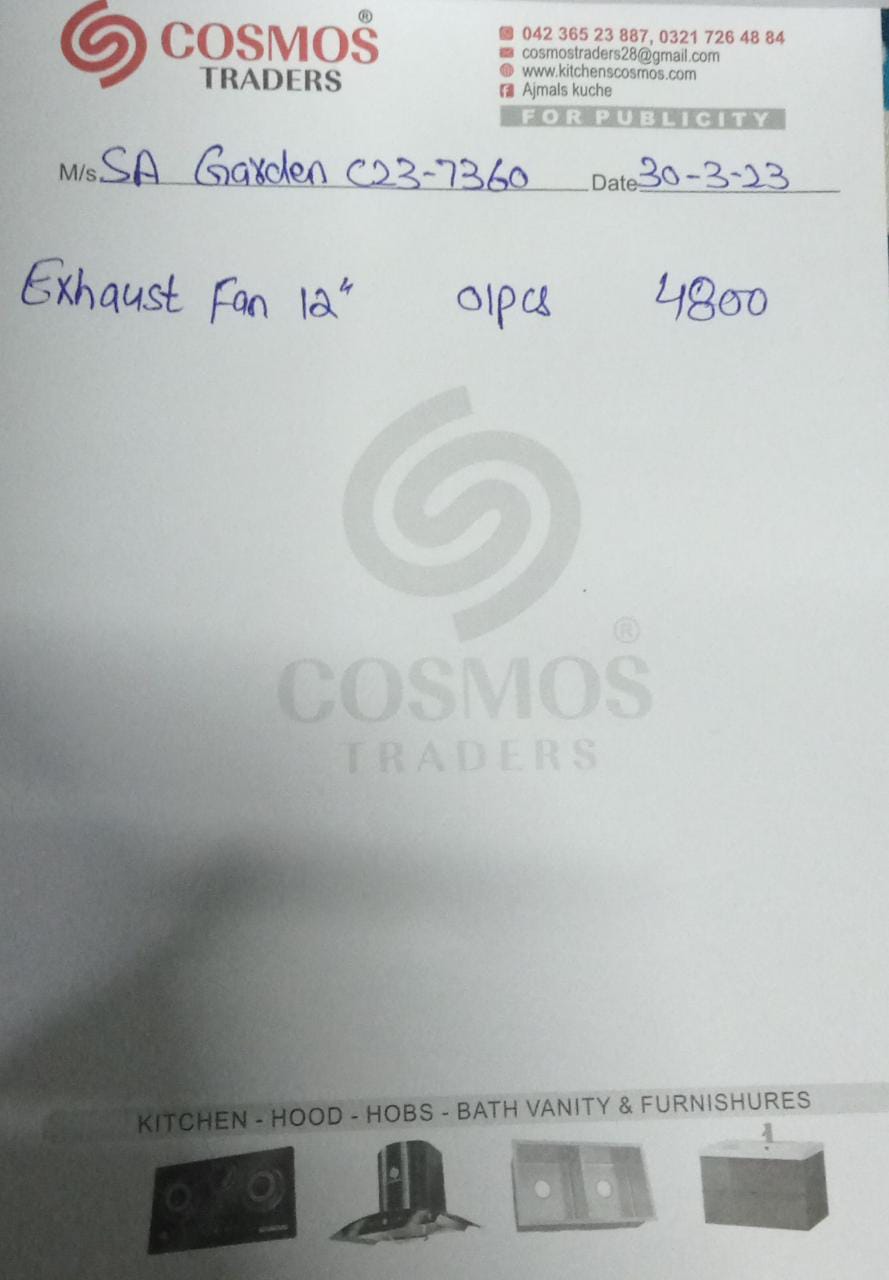 COSMOS ®
TRADERS
042 365 23 887, 0321 726 48 84
cosmostraders28@gmail.com
www.kitchenscosmos.com
Ajmals kuche
FOR PUBLICITY
M/s. SA Garden C23-7360 Date 30-3-23
Exhaust Fan 12" 01pcs 4800
®
COSMOS
TRADERS
KITCHEN - HOOD - HOBS - BATH VANITY & FURNISHURES